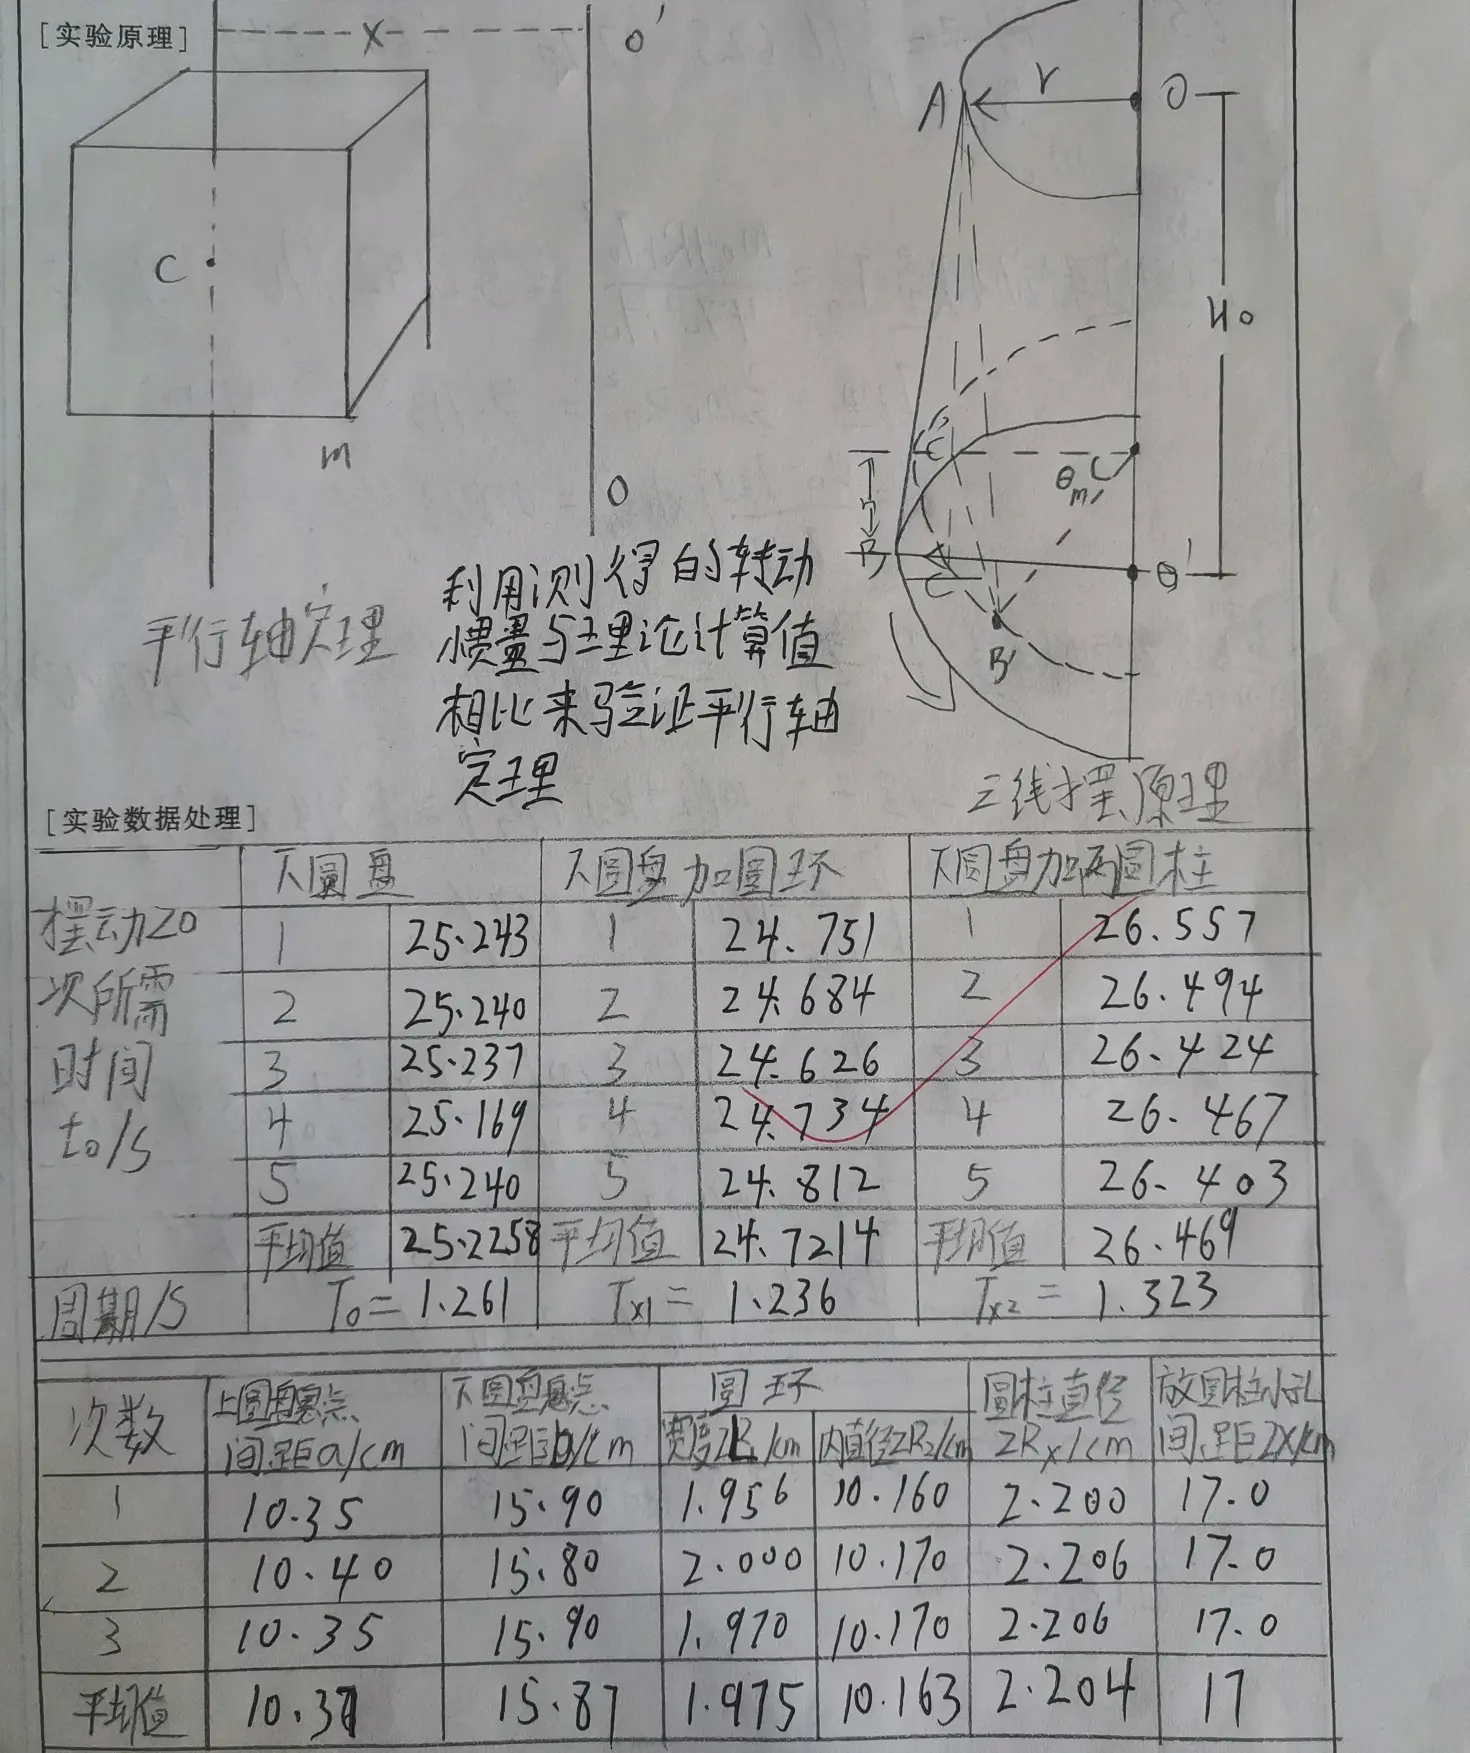 [实验原理]
x
O'
C
m
O
A
r
O
H0
C'
θm
h
B
C
O'
B'
平行轴定理
利用测得的转动
惯量与理论计算值
相比来验证平行轴
定理
三线摆原理
[实验数据处理]
摆动20次所需时间t0/s 下圆盘 下圆盘加圆环 下圆盘加两圆柱
1 25.243 1 24.751 1 26.557
2 25.240 2 24.684 2 26.494
3 25.237 3 24.626 3 26.424
4 25.169 4 24.734 4 26.467
5 25.240 5 24.812 5 26.403
平均值 25.2258 平均值 24.7214 平均值 26.469
周期/S T0=1.261 Tx1=1.236 Tx2=1.323
次数 上圆盘悬点间距a/cm 下圆盘悬点间距b/cm 圆环 圆柱直径2Rx/cm 放圆柱小孔间距2x/cm
宽度2R1/cm 内直径2R2/cm
1 10.35 15.90 1.956 10.160 2.200 17.0
2 10.40 15.80 2.000 10.170 2.206 17.0
3 10.35 15.90 1.970 10.170 2.206 17.0
平均值 10.37 15.87 1.975 10.163 2.204 17